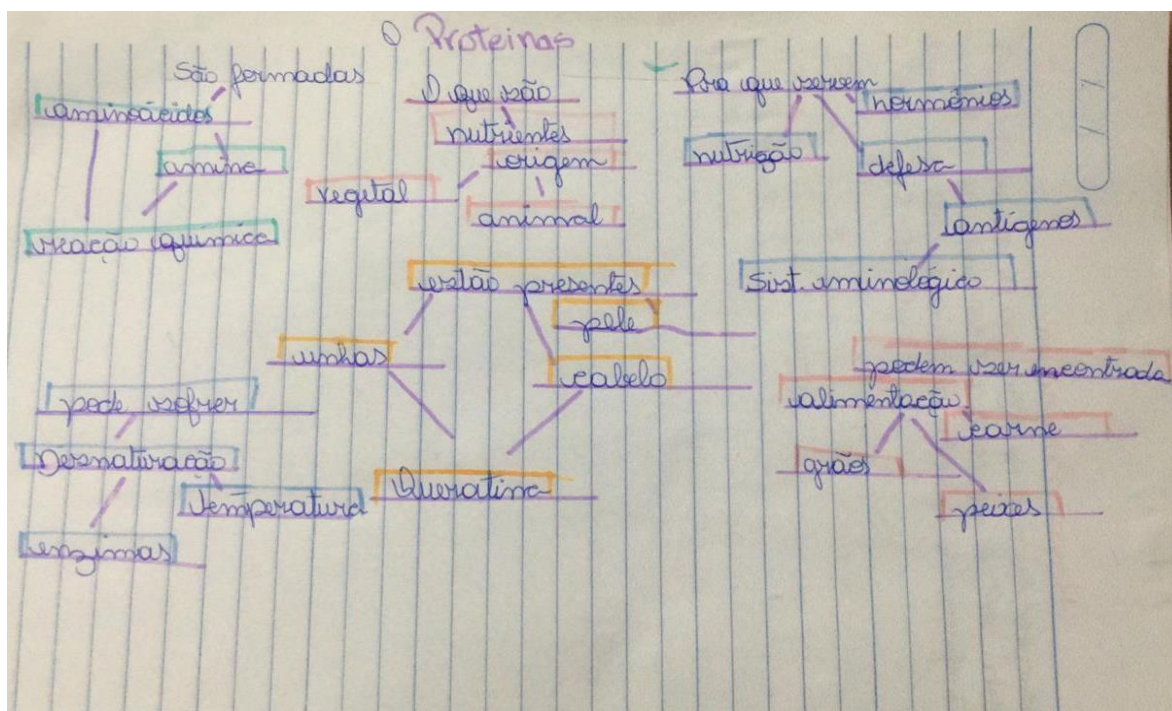 Proteinas
São formadas
aminoácidos
amina
reação química
O que são
nutrientes
origem
vegetal
animal
Pra que servem
hormônios
nutrição
defesa
antígenos
Sist. aminológico
estão presentes
pele
unhas
cabelo
Queratina
pode sofrer
Desnaturação
Temperatura
enzimas
podem ser encontrada
alimentação
carne
grãos
peixes